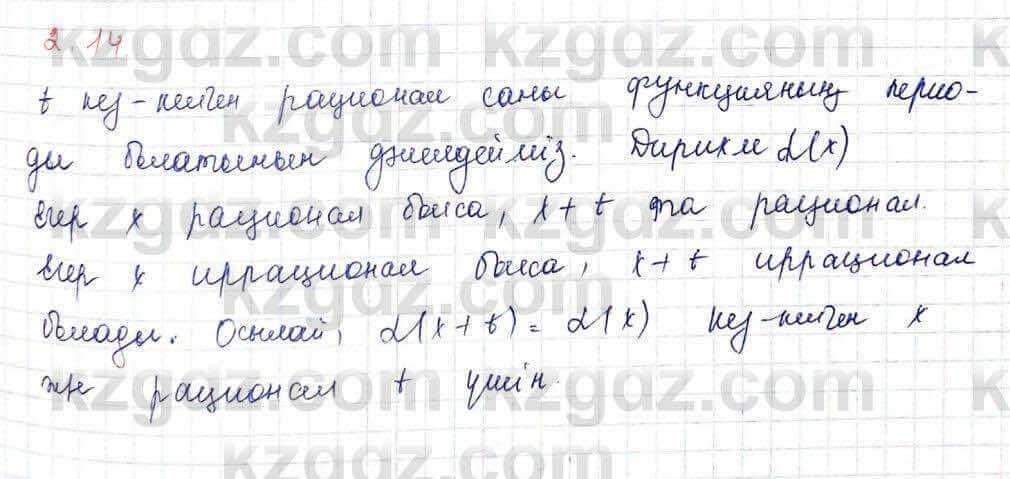 2.14
t кез-келген рационал саны функцияның перио-
ды болатынын дәлелдейміз. Дирихле d(x)
егер x рационал болса, x+t та рационал.
егер x иррационал болса, x+t иррационал
болады. Осылай, d(x+t)=d(x) кез-келген x
және рационал t үшін.
kzgdz.com